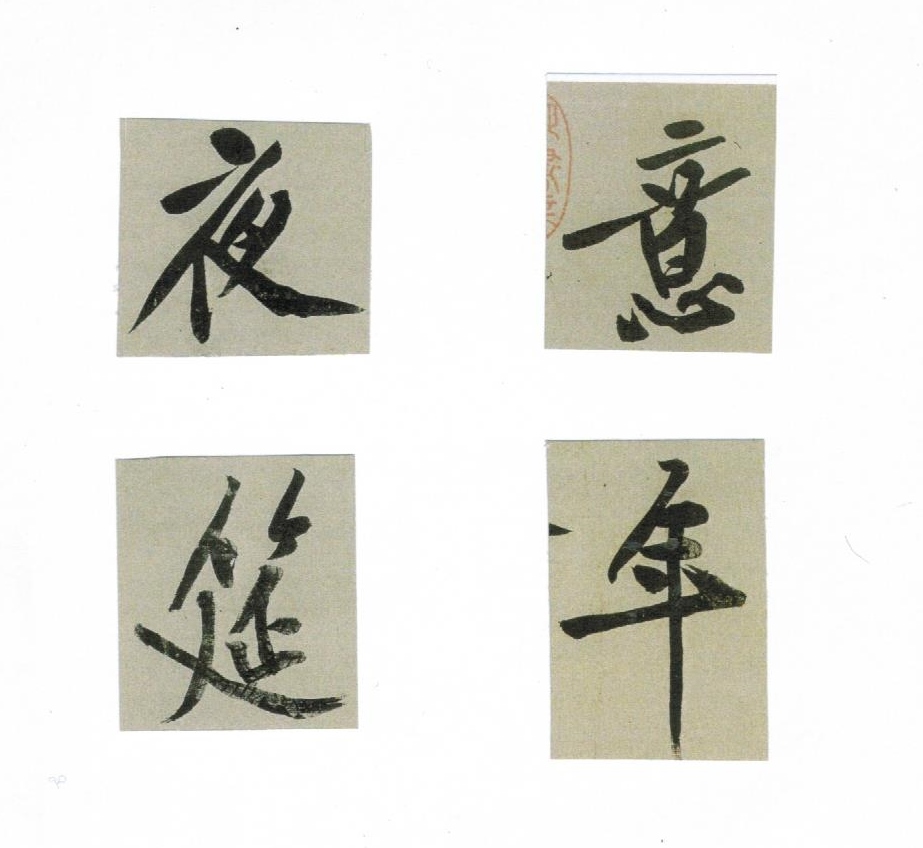 夜 意
筵 年